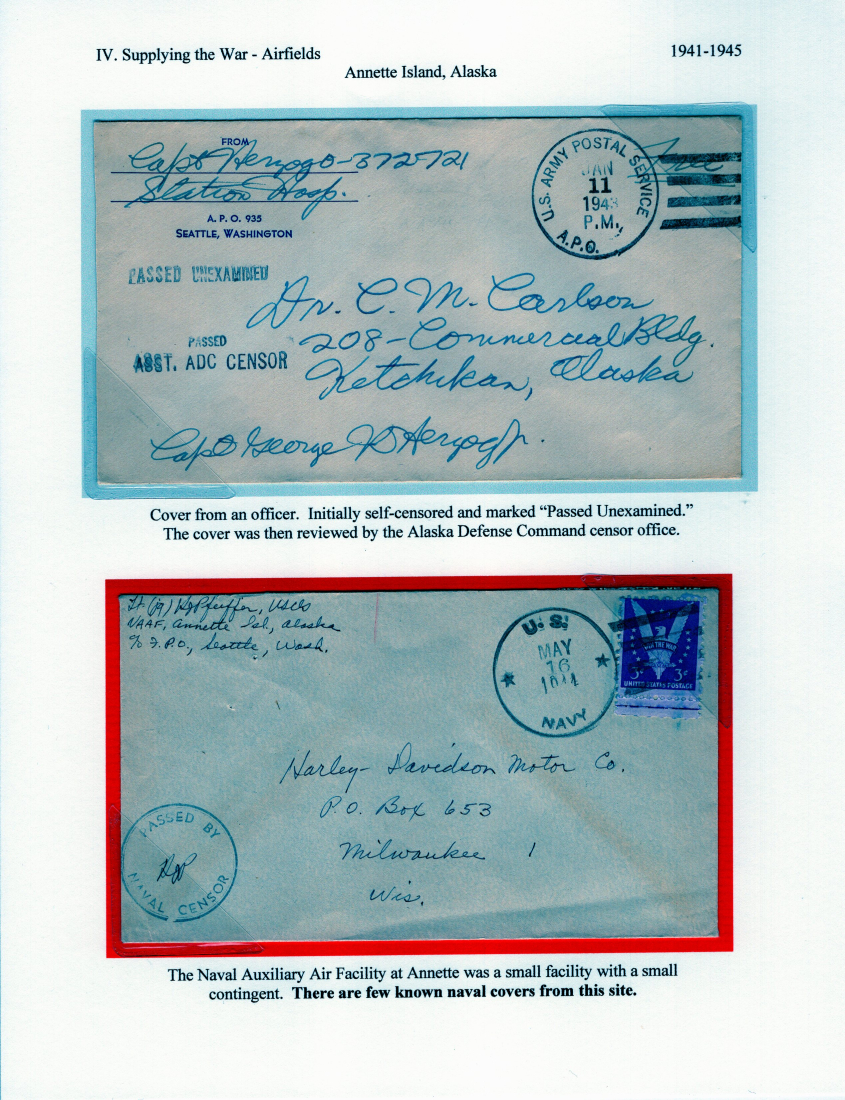 IV. Supplying the War - Airfields
1941-1945
Annette Island, Alaska
FROM
Capt Herzog O-372721
Station Hosp.
A. P. O. 935
SEATTLE, WASHINGTON
U.S. ARMY POSTAL SERVICE
JAN
11
1943
P.M.
A.P.O.
Free
PASSED UNEXAMINED
PASSED
ASST. ADC CENSOR
Dr. C. M. Carlson
208-Commercial Bldg.
Ketchikan, Alaska
Capt George Herzog Jr.
Cover from an officer. Initially self-censored and marked “Passed Unexamined.”
The cover was then reviewed by the Alaska Defense Command censor office.
Lt (jg) Pfeiffer,
NAAF, Annette Isl, Alaska
c/o F.P.O., Seattle, Wash.
U. S.
MAY
16
1944
NAVY
WIN THE WAR
3¢ 3¢
UNITED STATES POSTAGE
Harley-Davidson Motor Co.
P.O. Box 653
Milwaukee 1
Wis.
PASSED BY
NAVAL CENSOR
The Naval Auxiliary Air Facility at Annette was a small facility with a small
contingent. There are few known naval covers from this site.